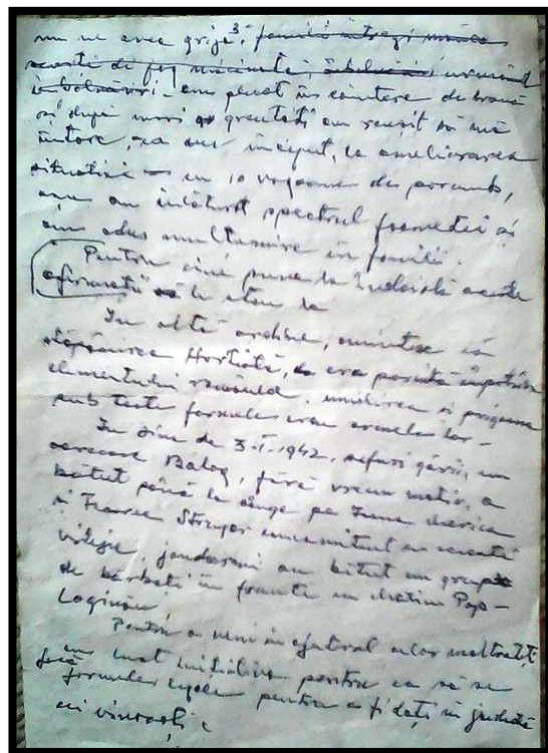 nu ne avea grija, ³ familii întregi
urmând
îmbolnăviri - am plecat în căutare de hrană
și după mari greutăți am reușit să mă
întorc, ca un început, la ameliorarea
situației cu 10 vagoane de porumb,
care au înlăturat spectrul foametei și
au adus mulțumire în familii.
Pentru cine pune la îndoială aceste
afirmații le stau la
În altă ordine, amintesc că
stăpînirea Hortistă, era pornită împotriva
elementului românesc, umilirea și prigoana
sub toate formele erau armele lor -
În ziua de 3-I-1942, șeful gării, un
oarecare Balog, fără vreun motiv, a
bătut până la sânge pe
și
vrăjie, jandarmi au bătut un grup
de bărbați în frunte cu Pop -
Loginău
Pentru a veni în ajutorul celor maltratați
am luat inițiativa pentru ca să se
facă formele legale pentru a fi dați în judecată
cei vinovați